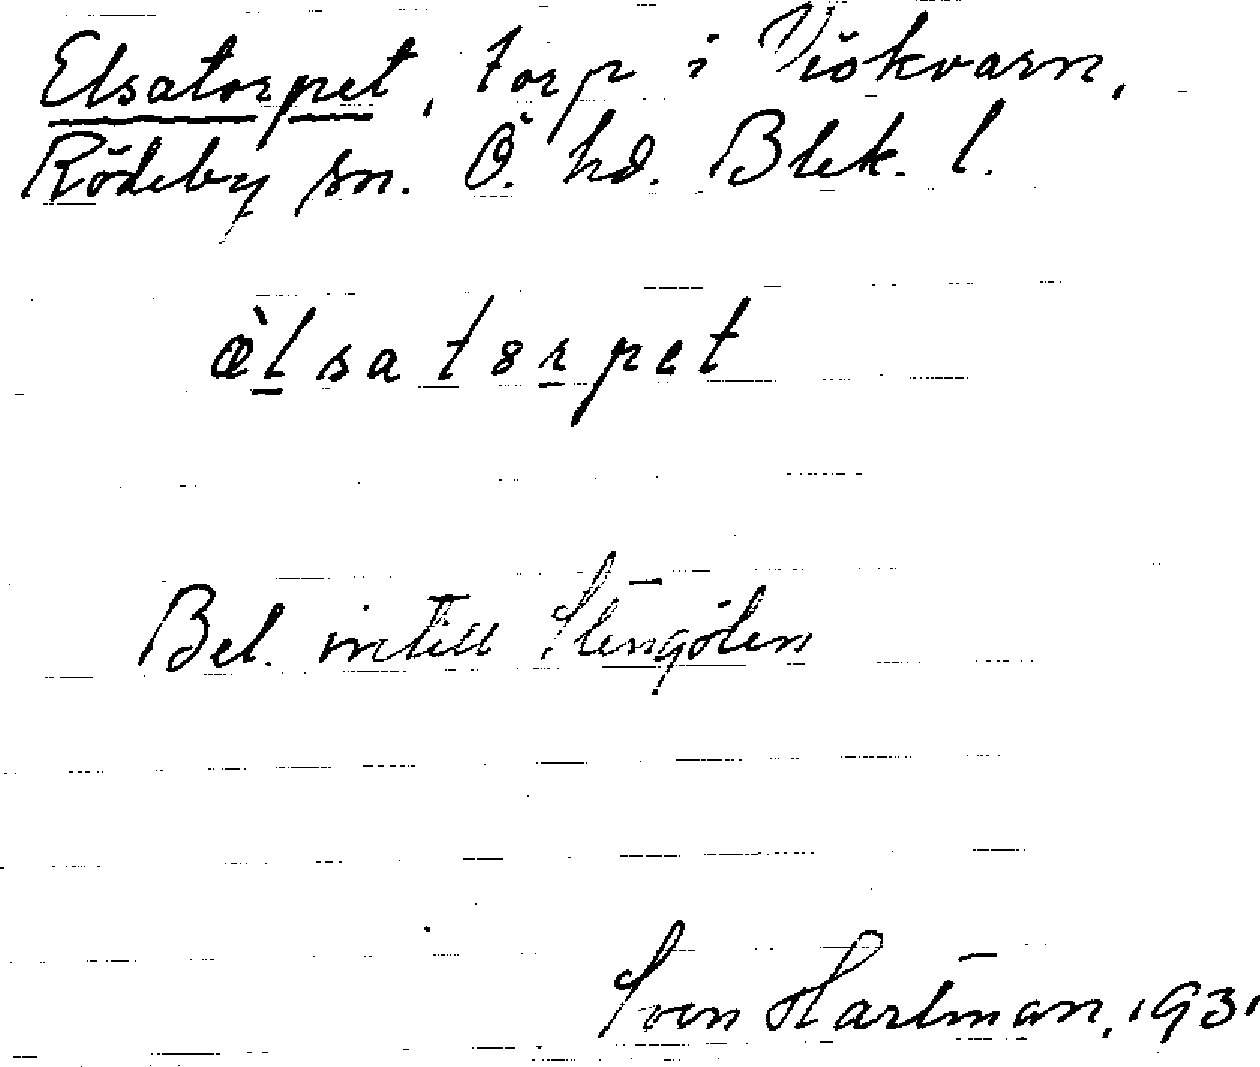 Elsatorpet, torp i Viökvarn,
Rödeby sn. Ö. hd. Blek. l.
æ̀lsatorpet
Bel. intill Stengölen
Sven Hartman, 1931